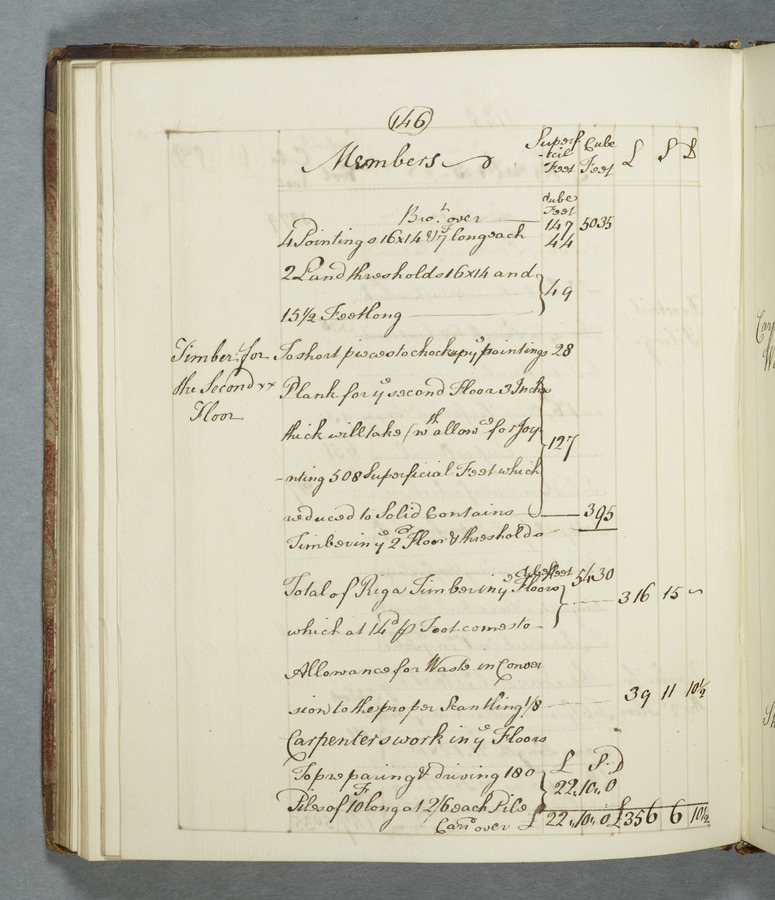 146
Members
Superf
-cial
Feet
Cube
Feet
£ S D
Cube
Feet
Bro.t over 5035
4 Pointings 16x14 & 7 long each 147
44
2 Land thresholds 16x14 and
15½ Feet long 49
Timber for
the Second xx
Floor
To short pieces to chock up ye pointings 28
Plank for ye second Floor 3 Inches
thick will take (wth allowce for Joy-
-nting 508 Superficial Feet which 127
reduced to Solid Contains 395
Timber in ye 2d Floor & thresholds
Total of Riga Timber in ye Floors Cube Feet 5430
which at 14d p Foot comes to 316 15 ~
Allowance for Waste in Conver
sion to the proper Scantling 1/8 39 11 10½
Carpenters work in ye Floors
To preparing & driving 180 £ S D
Piles of 10 F long at 2/6 each Pile 22,,10,,0
Card over £ 22,,10,,0 £356 6 10½